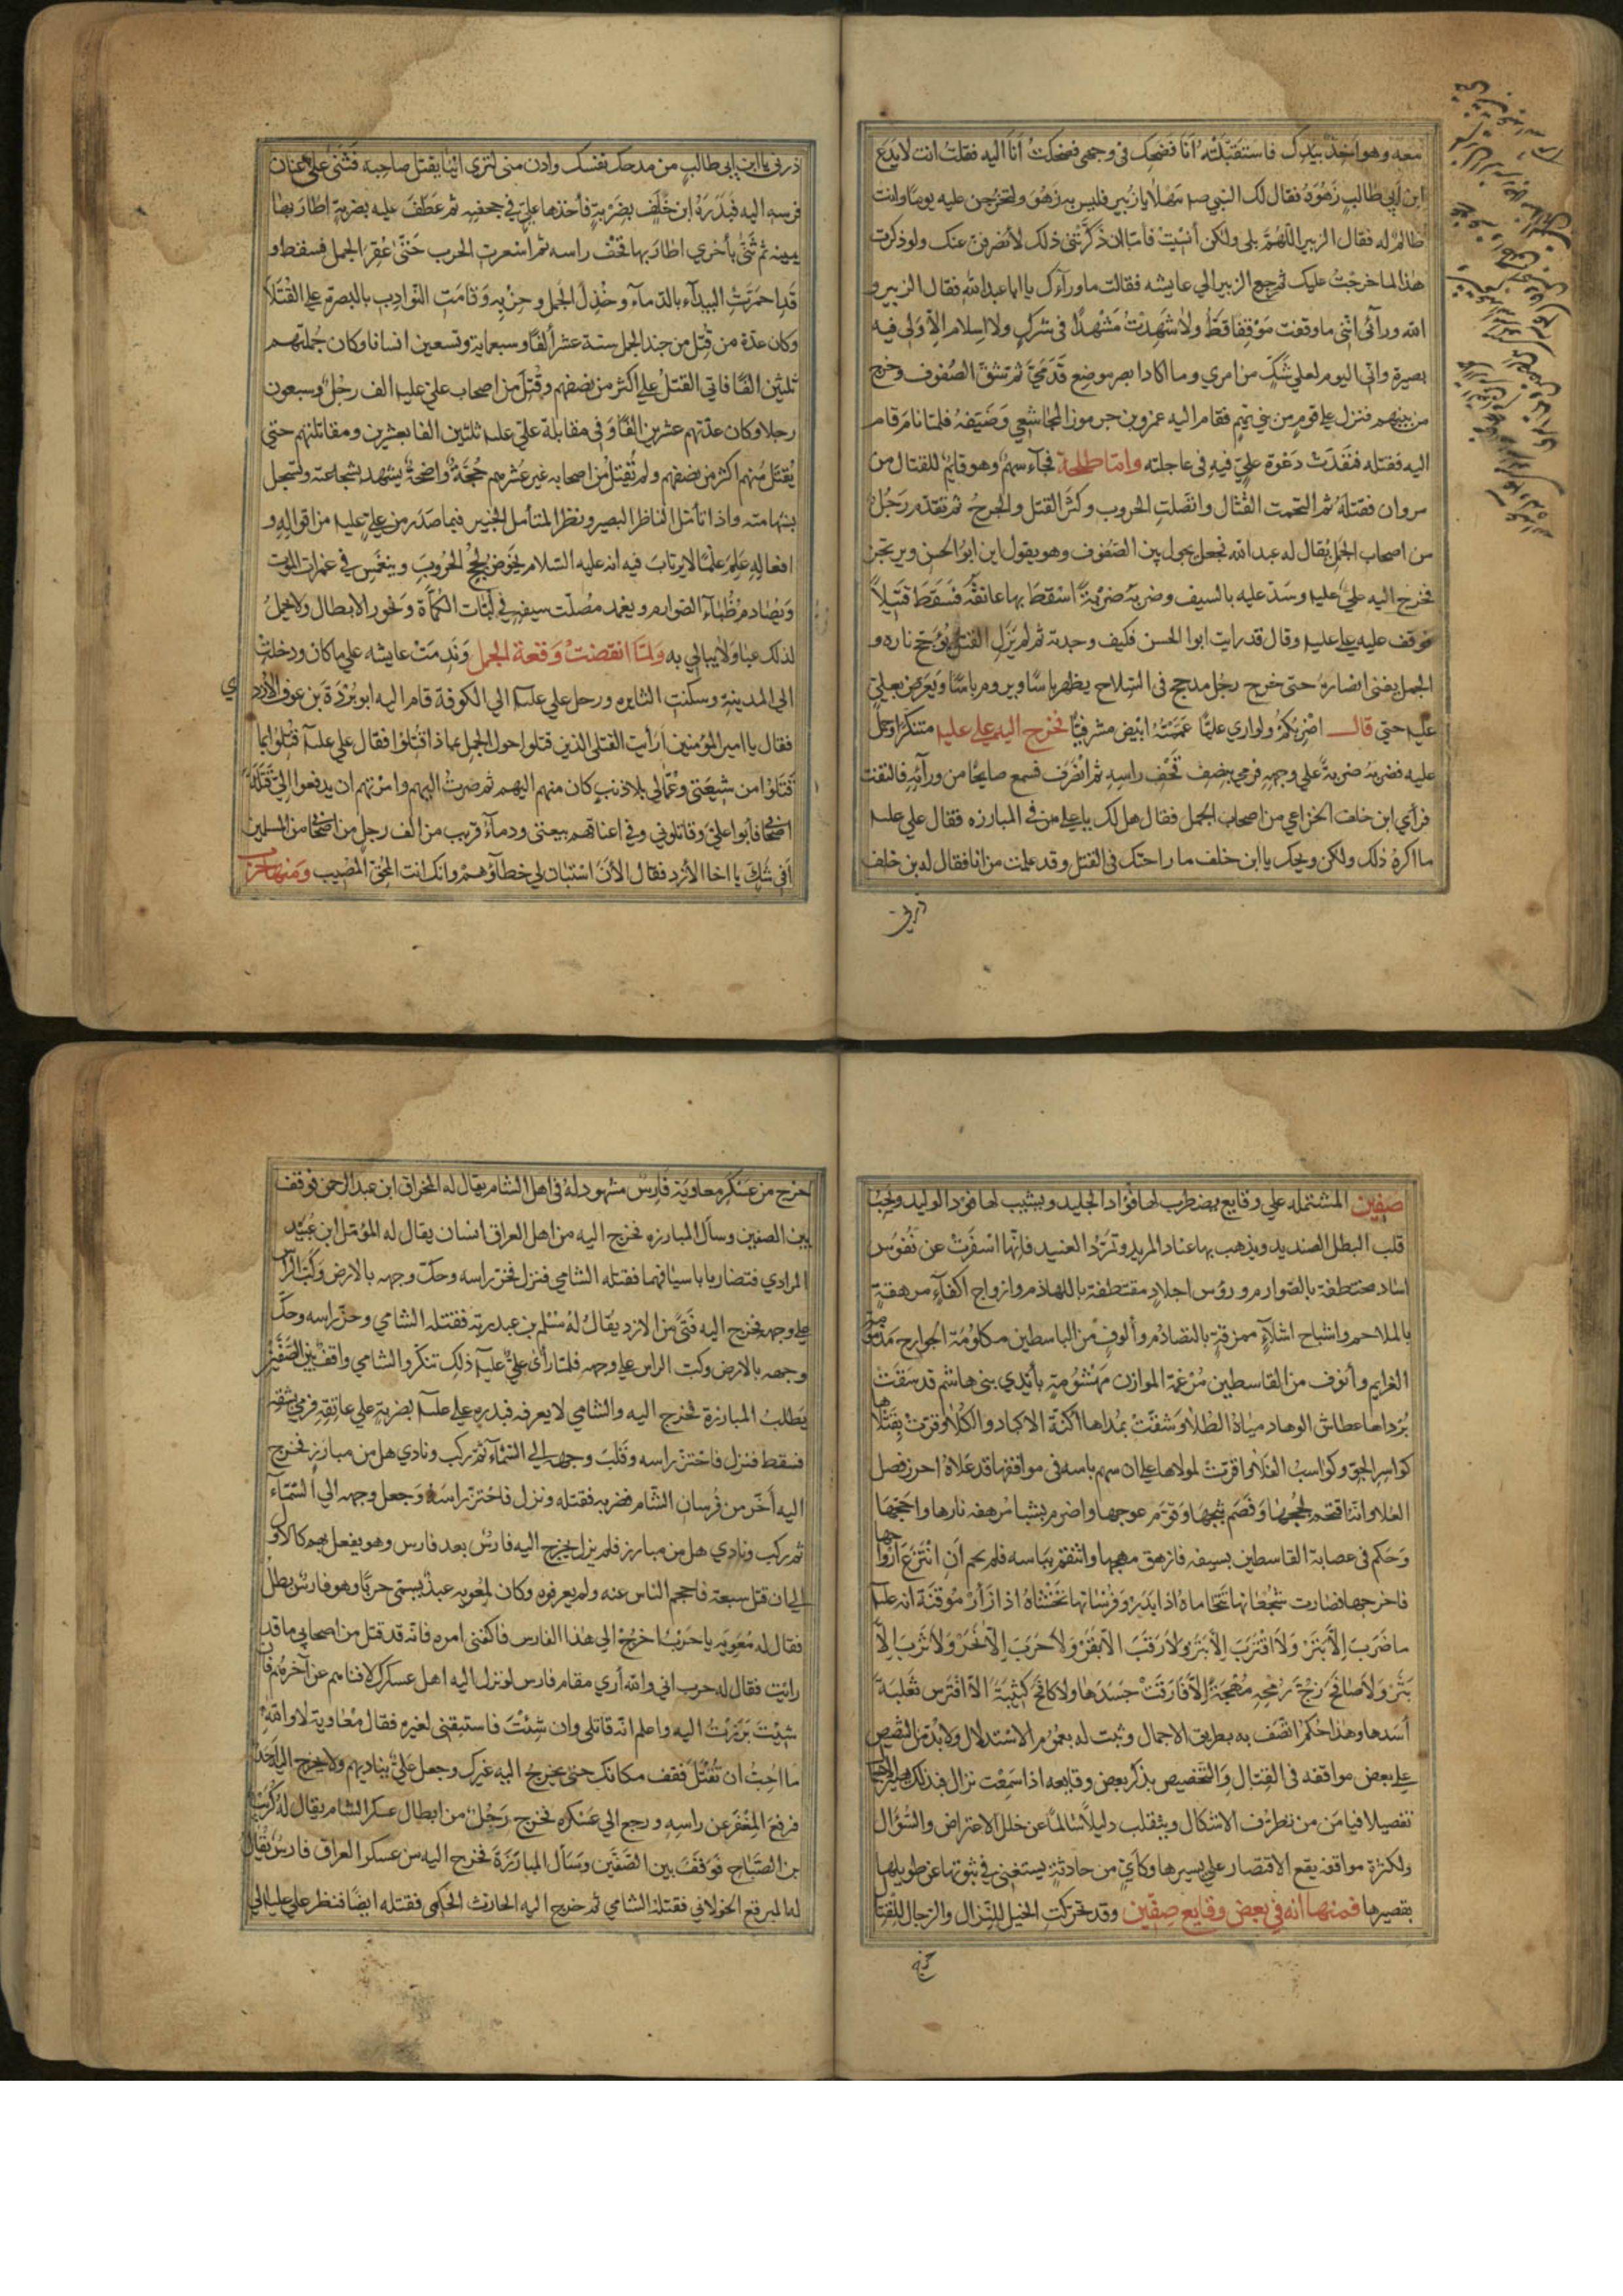 معه وهو آخذ بيدك فاستقبلته انا فضحك في وجهي فضحكت انا اليه فقلت انت لا يدع
ابن ابي طالب زهوه فقال لك النبي صم مهلا يا زبير فليس به زهو ولتخرجن عليه يوما وانت
ظالم له فقال الزبير اللهم بلى ولكن أنسيت فاما ان ذكرتني ذلك لأنصرفن عنك ولو ذكرت
هذا لما خرجت عليك ثم رجع الزبير الي عايشه فقالت ما ورآءك يا ابا عبد الله فقال الزبير و
الله ورآئي انني ما وقفت موقفا قط ولا شهدت مشهدا في شرك ولا اسلام الا ولي فيه
بصيرة واني اليوم لعلي شك من امري وما اكاد ابصر موضع قدمي ثم شق الصفوف وخرج
من بينهم فنزل علي قوم من بني تميم فقام اليه عمرو بن جرموز المجاشعي وضيفه فلما نام قام
اليه فقتله فنفذت دعوة علي فيه في عاجلته واما طلحة فجآء سهم وهو قايم للقتال من
مروان فقتله ثم التحمت القتال واتصلت الحروب وكثر القتل والجرح ثم تقدم رجل
من اصحاب الجمل يقال له عبد الله فجعل يجول بين الصفوف وهو يقول اين ابو الحسن ويرتجز
فخرج اليه علي عليه وشد عليه بالسيف وضربه ضربة اسقط بها عاتقه فسقط قتيلا
فوقف عليه علي عليه وقال قد رايت ابوا الحسن فكيف وجدته ثم لم يزل القتل يؤجج ناره و
الجمل يفني انصاره حتى خرج رجل مدجج في السلاح يظهر باسا ويروم باسا ويعرض بعلي
عليه حتي قال اضربكم ولو اري عليا عممته ابيض مشرفيا فخرج اليه علي عليه متنكرا وحمل
عليه فضربه ضربة علي وجهه فرمي بنصف قحف راسه ثم انصرف فسمع صايحا من ورآئه فالتفت
فرأي ابن خلف الخزاعي من اصحاب الجمل فقال هل لك يا علي من في المبارزه فقال علي عليه
ما اكره ذلك ولكن ويحك يا ابن خلف ما راحتك في القتل وقد علمت من انا فقال له بن خلف
ذرني
ذرني يا ابن ابي طالب من مدحك نفسك وادن مني لتري اينا يقتل صاحبه فثنى علي عنان
فرسه اليه فبدره ابن خلف بضربة فأخذها علي في جحفته ثم عطف عليه بضربة اطار بها
يمينه ثم ثنى بأخري اطار بها قحف راسه ثم استعرت الحرب حتى عقر الجمل فسقط و
قد احمرت البيدآء بالدمآء وخذل الجمل وحزبه وقامت النوادب بالبصرة علي القتلا
وكان عدة من قتل من جند الجمل ستة عشر ألفا وسبعماية وتسعين انسانا وكان جملتهم
ثلثين الفا فاتي القتل علي اكثر من نصفهم وقتل من اصحاب علي عليه الف رجل وسبعون
رجلا وكان عدتهم عشرين الفا وفي مقابلة علي عليه ثلثين الفا بعشرين ومقاتلتهم حتي
يقتل منهم اكثر من نصفهم ولم تقتل من اصحابه غير عشرهم حجة واضحة يشهد بشجاعته وتسجل
بشهامته واذا تأمل الناظر البصير ونظر المتأمل الخبير فيما صدر من علي عليه من اقواله و
افعاله علم علما لا يرتاب فيه انه عليه السلام يخوض لجج الحروب وينغمس في غمرات الموت
ويصادم ظبآء الصوارم ويغمد مصلت سيفه في لبات الكمآة ونحور الابطال ولا يحمل
لذلك عبا ولا يبالي به ولما انقضت وقعة الجمل وندمت عايشه علي ما كان ودخلت
الي المدينة وسكنت الثايره ورحل علي عليه الي الكوفة قام اليه ابو بردة بن عوف الأزدي
فقال يا امير المؤمنين أرأيت القتلي الذين قتلوا حول الجمل بماذا قتلوا فقال علي عليه قتلوا بما
قتلوا من شيعتي وعمالي بلا ذنب كان منهم اليهم ثم صرت اليهم وامرتهم ان يدفعوا الي قتلة
اصحابي فأبوا علي وقاتلوني وفي اعناقهم بيعتي ودمآء قريب من الف رجل من اصحابي من المسلمين
افي شك يا اخا الأزد فقال الأن استبان لي خطآؤهم وانك انت المحق المصيب ومنها حرب
صفين المشتمله علي وقايع يضطرب لها فؤاد الجليد ويشيب لها فود الوليد ويجب
قلب البطل الصنديد ويذهب بها عناد المريد وتمرد العنيد فانها اسفرت عن نفوس
اساد مختطفة بالصوارم ورؤس اجلاد مقتطفة باللهاذم وازواج اكفآء مرهقة
بالملاحم واشباح اشلآء ممزقة بالتصادم وألوف من الباسطين مكلومة الجوارح
الغرايم وأنوف من القاسطين مرغمة الموازن مهشومة بأيدي بني هاشم قد سقت
برداها عطاش الوهاد مياه الطلا وشفت بمداها أكنة الاكباد والكلا وقرت بقتلاها
كواسر الجو وكواسب الفلا واقرت لمولاها علي ان سهم باسه في مواقفها قد علاه احرز فصل
العلا وانه اقتحم لججها وقصم ثبجها وقوم عوجها واضرم بشبا مرهفه نارها واججها
وحكم في عصابة القاسطين بسيفه فازهق مهجها وانتقم بباسه فلم يحم ان انتزع ارواحها
فاخرجها فصارت شجعانها تتحاماه اذا بدر وفرسانها تخشاه اذا زأر موقنة انه عليه
ما ضرب الا بتر ولا اقترب الا بتر ولا رقب الا بقر ولا حرب الا نحر ولا ثرب الا
بتر ولا صافح زج رمحه مهجة الا فارقت جسدها ولا كافح كتيبة الا افترس ثعلبه
أسدها وهذا حكم اتصف به بطريق الاجمال وثبت له بعموم الاستدلال ولا بد من التنصيص
علي بعض مواقفه في القتال والتخصيص بذكر بعض وقايعه اذا سمعت نزال فبذلك
تفصيلا فيامن من تطرف الاشكال وينقلب دليلا سالما عن خلل الاعتراض والسؤال
ولكثرة مواقفه يقع الاقتصار علي يسيرها وكأي من حادثة يستغني في ثبوتها عن طويلها
بقصيرها فمنها انه في بعض وقايع صفين وقد تحركت الخيل للنزال والرجال للقتال
خرج
خرج من عسكر معاوية فارس مشهود له في اهل الشام يقال له المخراق ابن عبد الرحمن فوقف
بين الصفين وسأل المبارزه فخرج اليه من اهل العراق انسان يقال له المؤمل ابن عبيد
المرادي فتضاربا باسيافهما فقتله الشامي فنزل فحز راسه وحك وجهه بالارض وكب الراس
علي وجهه فخرج اليه فتى من الازد يقال له مسلم بن عبد ربه فقتله الشامي وحز راسه وحك
وجهه بالارض وكب الراس علي وجهه فلما رأى علي عليه ذلك تنكر والشامي واقف بين الصفين
يطلب المبارزة فخرج اليه والشامي لا يعرفه فبدره علي عليه بضربة علي عاتقه فرمي بشقه
فسقط فنزل فاحتز راسه وقلب وجهه الي السمآء ثم ركب ونادي هل من مبارز فخرج
اليه أخر من فرسان الشام فضربه فقتله ونزل فاحتز راسه وجعل وجهه الي السمآء
ثم ركب ونادي هل من مبارز فلم يزل يخرج اليه فارس بعد فارس وهو يفعل بهم كالاول
الي ان قتل سبعة فاحجم الناس عنه ولم يعرفوه وكان لمعويه عبد يسمى حربا وهو فارس بطل
فقال له معويه يا حرب اخرج الي هذا الفارس فاكفني امره فانه قد قتل من اصحابي ما قد
رأيت فقال له حرب اني والله أري مقام فارس لو نزل اليه اهل عسكرك لافناهم عن آخرهم فان
شئت برزت اليه واعلم انه قاتلي وان شئت فاستبقني لغيره فقال معاوية لا والله
ما احب ان تقتل فقف مكانك حتى يخرج اليه غيرك وجعل علي يناديهم ولا يخرج اليه احد
فرفع المغفر عن راسه ورجع الي عسكره فخرج رجل من ابطال عسكر الشام يقال له كريب
بن الصباح فوقف بين الصفين وسأل المبارزة فخرج اليه من عسكر العراق فارس يقال
له المبرقع الخولاني فقتله الشامي ثم خرج اليه الحارث الحكمي فقتله ايضا فنظر علي عليه الي